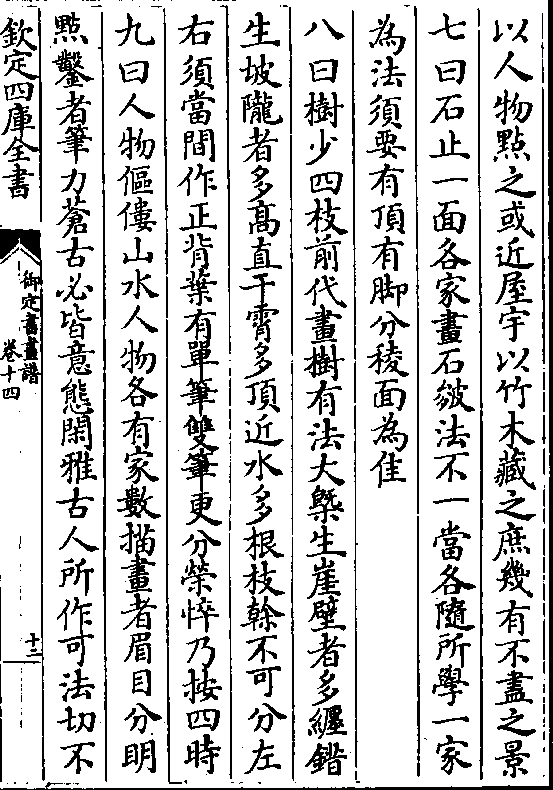 以人物點之或近屋宇以竹木藏之庶幾有不盡之景
七曰石止一面各家畫石皴法不一當各隨所學一家
為法須要有頂有脚分稜面為佳
八曰樹少四枝前代畫樹有法大槩生崖壁者多纏錯
生坡隴者多髙直干霄多頂近水多根枝榦不可分左
右須當間作正背葉有單筆雙筆更分榮悴乃按四時
九曰人物傴僂山水人物各有家數描畫者眉目分明
點鑿者筆力蒼古必皆意態閑雅古人所作可法切不
欽定四庫全書
御定書畫譜
卷十四
十二